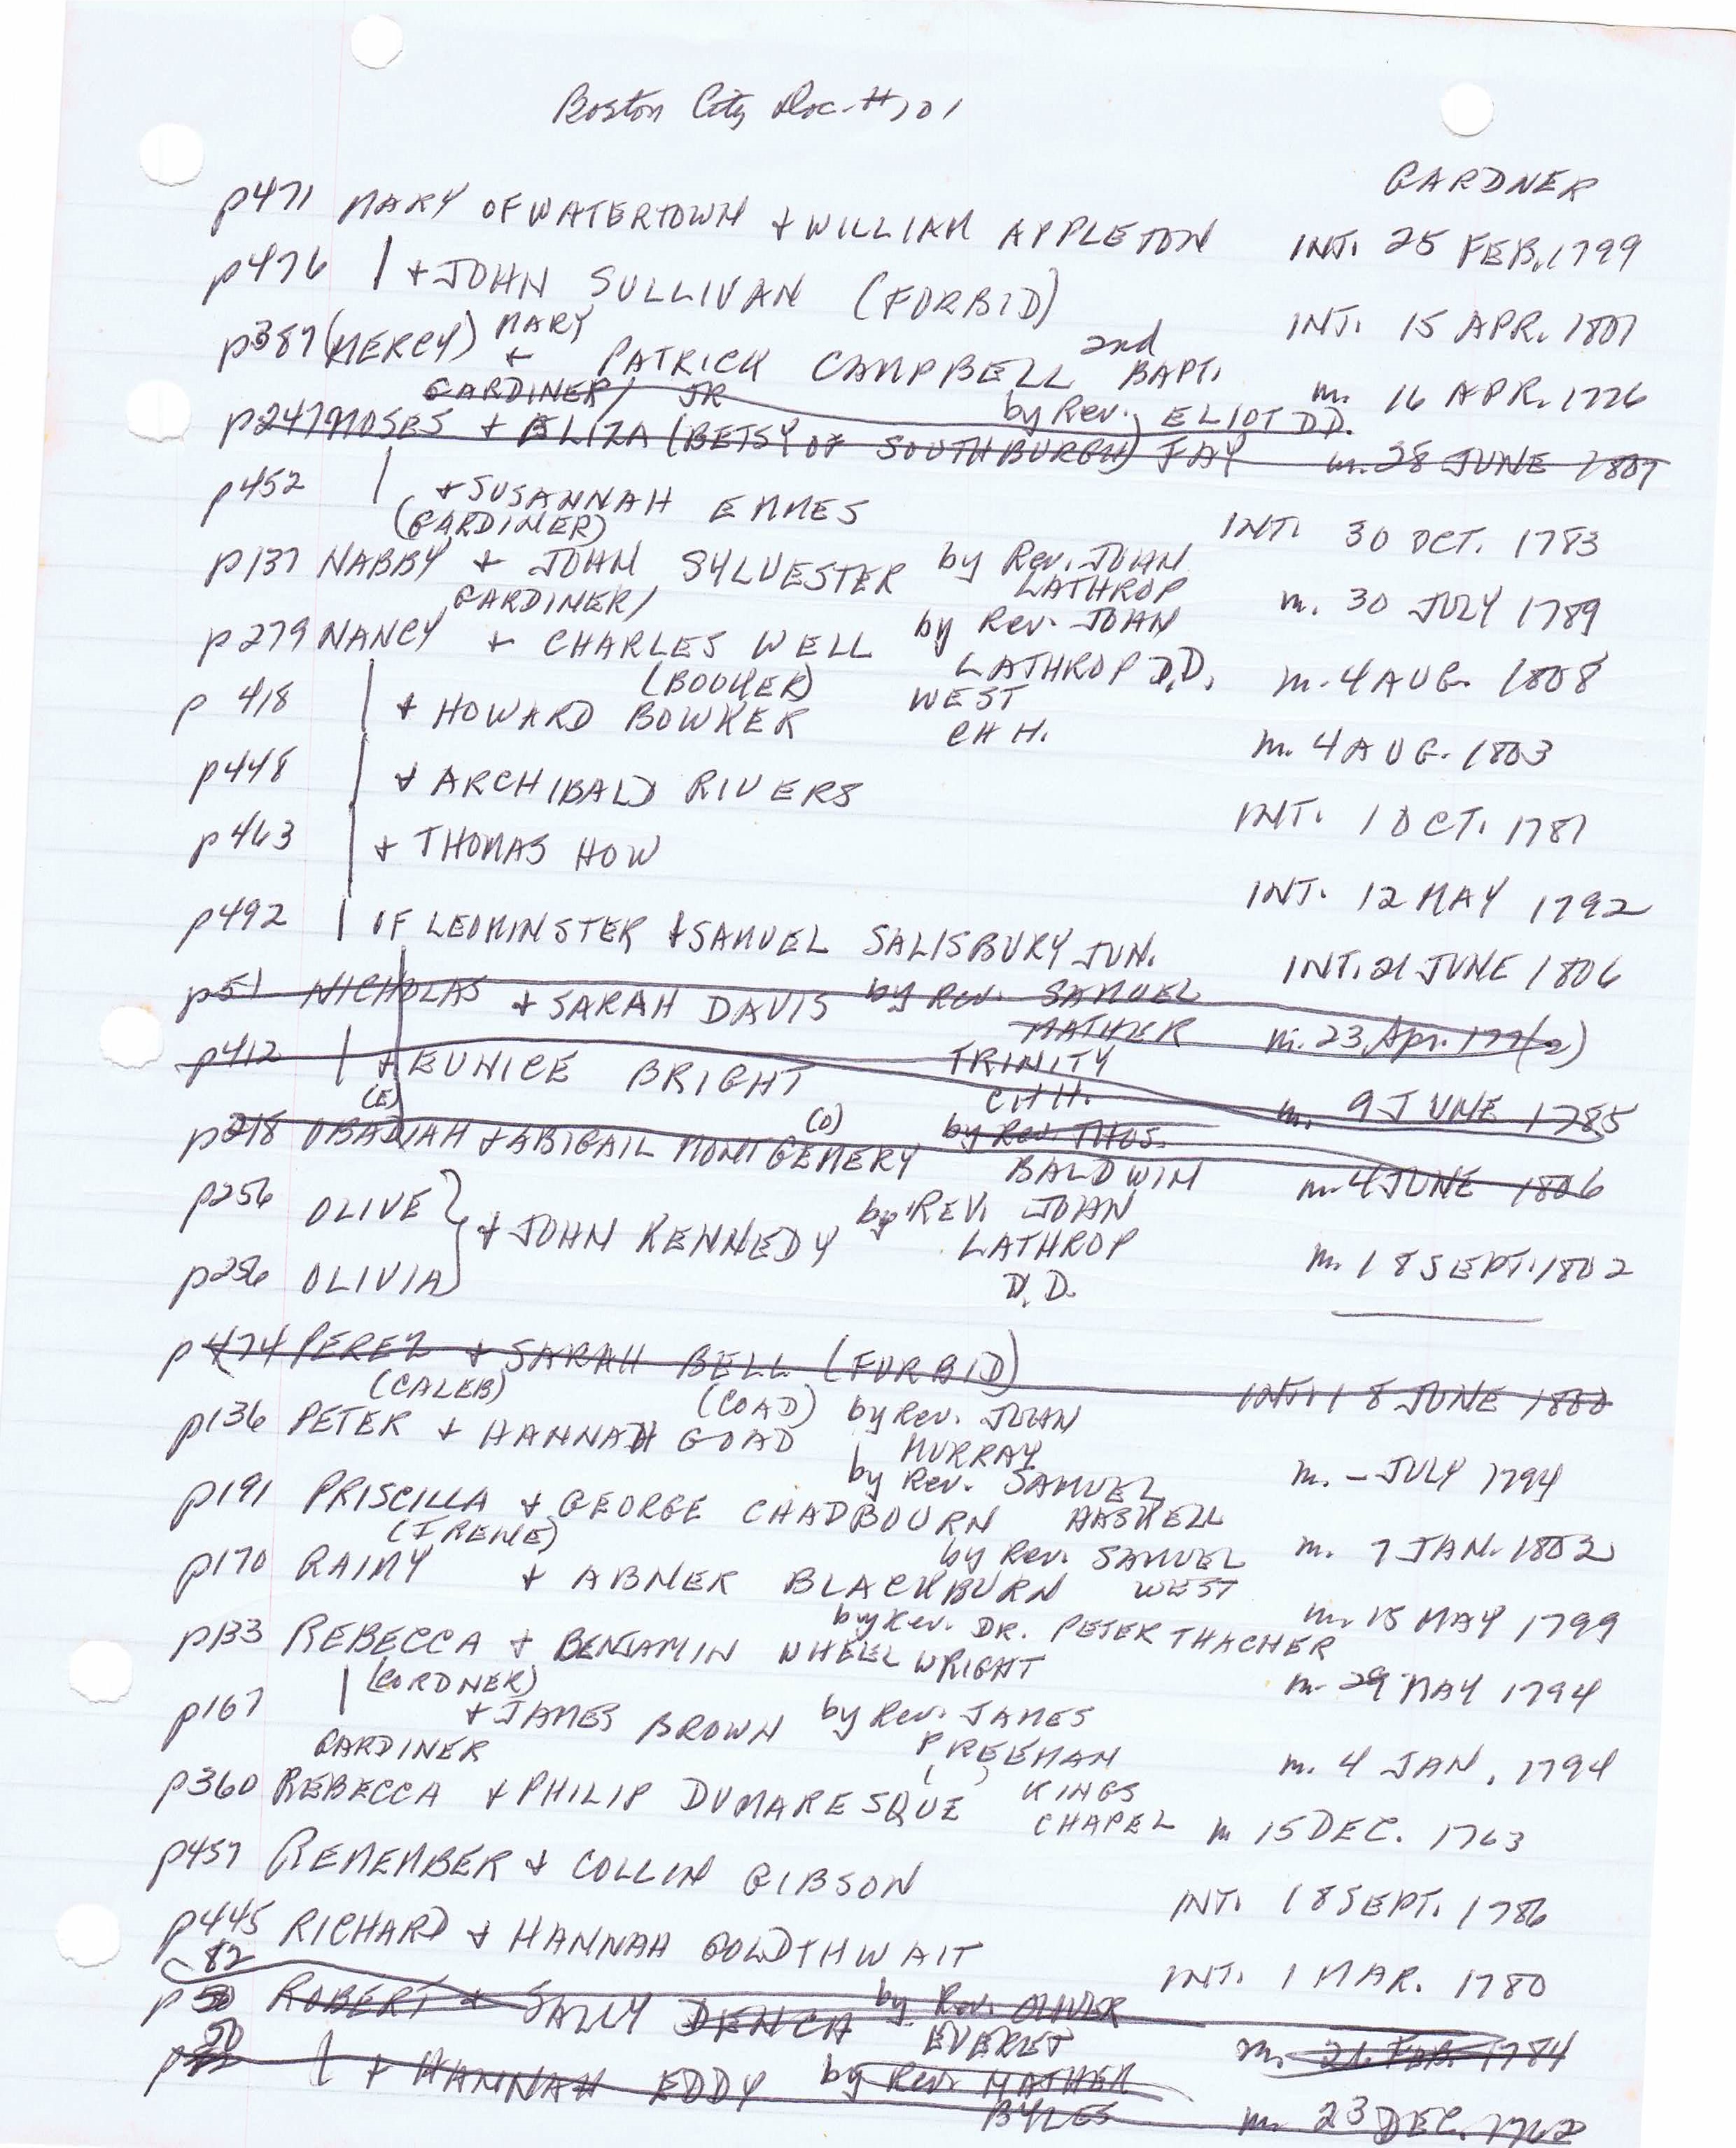 Boston City Doc. #101
GARDNER
p471 MARY OF WATERTOWN + WILLIAM APPLETON INT. 25 FEB. 1799
p476 | + JOHN SULLIVAN (FORBID) INT. 15 APR. 1801
p387 (MERCY) MARY + PATRICK CAMPBELL 2nd BAPT. m. 16 APR. 1776
GARDINER/ JR by Rev. ELIOT D.D.
p247 MOSES + ELIZA (BETSY OF SOUTHBURGH) FAY m. 28 JUNE 1807
p452 | + SUSANNAH EMMES INT. 30 OCT. 1783
(GARDINER)
p137 NABBY + JOHN SYLVESTER by Rev. JOHN LATHROP m. 30 JULY 1789
GARDINER/
p279 NANCY + CHARLES WELL by Rev. JOHN LATHROP D.D. m. 4 AUG. 1808
(BOOKER)
p 418 | + HOWARD BOWKER WEST CHH. m. 4 AUG. 1803
p448 | + ARCHIBALD RIVERS INT. 1 OCT. 1781
p463 | + THOMAS HOW INT. 12 MAY 1792
p492 | OF LEOMINSTER + SAMUEL SALISBURY JUN. INT. 21 JUNE 1806
p51 NICHOLAS + SARAH DAVIS by Rev. SAMUEL MATHER m. 23 Apr. 177(2)
p412 | + EUNICE BRIGHT TRINITY CHH. m. 9 JUNE 1785
(E) (O)
p218 OBADIAH + ABIGAIL MONTGEMERY by Rev. THOS. BALDWIN m. 4 JUNE 1806
p256 OLIVE } + JOHN KENNEDY by REV. JOHN LATHROP D.D. m. 18 SEPT. 1802
p256 OLIVIA }
p474 PEREZ + SARAH BELL (FORBID) INT. 18 JUNE 1800
(CALEB) (COAD)
p136 PETER + HANNAH GOAD by Rev. JOHN MURRAY m. – JULY 1794
p191 PRISCILLA + GEORGE CHADBOURN by Rev. SAMUEL HASKELL m. 7 JAN. 1802
(IRENE)
p170 RAINY + ABNER BLACKBURN by Rev. SAMUEL WEST m. 15 MAY 1799
p133 REBECCA + BENJAMIN WHEELWRIGHT by Rev. DR. PETER THACHER m. 29 MAY 1794
(CORDNER)
p167 | + JAMES BROWN by Rev. JAMES FREEMAN m. 4 JAN. 1794
GARDINER
p360 REBECCA + PHILIP DUMARESQUE KINGS CHAPEL m 15 DEC. 1763
p457 REMEMBER + COLLIN GIBSON INT. 18 SEPT. 1786
p445 RICHARD + HANNAH GOLDTHWAIT INT. 1 MAR. 1780
82
p ROBERT + SALLY DENCH by Rev. OLIVER EVERET m. 21 FEB. 1784
50
p | + HANNAH EDDY by Rev. MATHER BYLES m. 23 DEC. 1762